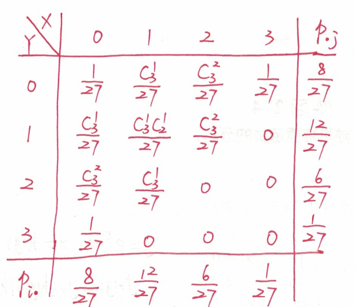 X
Y 0 1 2 3 P.j
0 1/27 C₃¹/27 C₃²/27 1/27 8/27
1 C₃¹/27 C₃¹C₂¹/27 C₃²/27 0 12/27
2 C₃²/27 C₃¹/27 0 0 6/27
3 1/27 0 0 0 1/27
Pi. 8/27 12/27 6/27 1/27